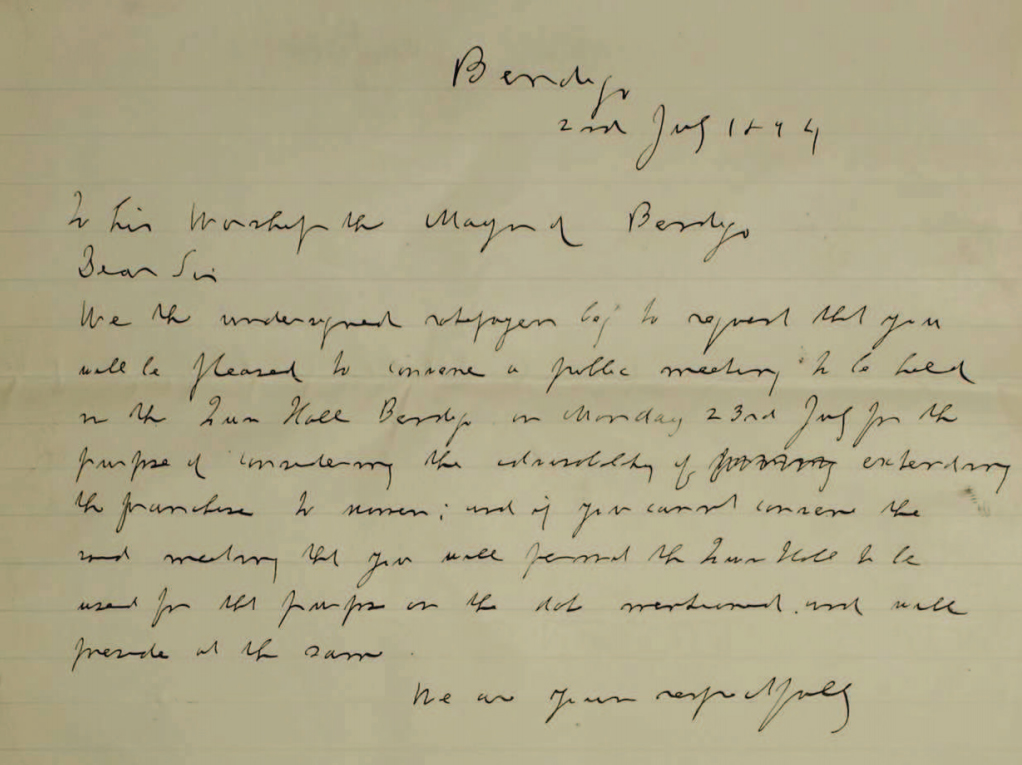 Bendigo
2nd July 1894
To his Worship the Mayor of Bendigo
Dear Sir
We the undersigned ratepayers beg to request that you
will be pleased to convene a public meeting to be held
in the Town Hall Bendigo on Monday 23rd July for the
purpose of considering the advisability of extending
the franchise to women; and if you cannot convene the
said meeting that you will permit the Town Hall to be
used for that purpose on the date mentioned and will
preside at the same.
We are yours respectfully